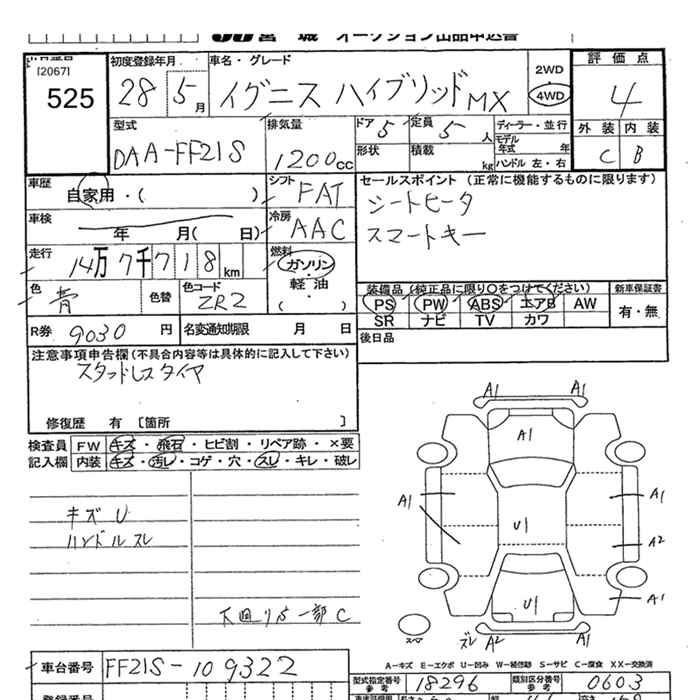 JU 宮城 オークション出品申込書
[2067]
525
初度登録年月
28 5月
車名・グレード
イグニス ハイブリッド MX
2WD
4WD
評価点
4
型式
DAA-FF21S
排気量
1200cc
ドア 5
定員 5人
形状
積載 kg
ディーラー・並行
モデル年式 年
ハンドル 左・右
外装 内装
C B
車歴
自家用・( )
シフト
FAT
セールスポイント (正常に機能するものに限ります)
シートヒータ
スマートキー
車検
年 月( 日)
冷房
AAC
走行
14万7千718km
燃料
ガソリン・
軽油・
( )
色
青
色替
色コード
ZR2
装備品(純正品に限り○をつけてください)
新車保証書
PS PW ABS エアB AW
SR ナビ TV カワ
有・無
R券 9030 円
名変通知期限 月 日
後日品
注意事項申告欄(不具合内容等は具体的に記入して下さい)
スタッドレスタイヤ
修復歴 有 [箇所 ]
検査員 FW キズ・飛石・ヒビ割・リペア跡・×要
記入欄 内装 キズ・汚レ・コゲ・穴・スレ・キレ・破レ
キズU
ハンドルスレ
下回りS一部C
A1 A1
A1
A1 A1
U1
A2
U1 A1
スペア
ズレ A2 A1
A-キズ E-エクボ U-凹み W-補修跡 S-サビ C-腐食 XX-交換済
車台番号 FF21S-109322
型式指定番号 参考 18296
類別区分番号 参考 0603
登録番号